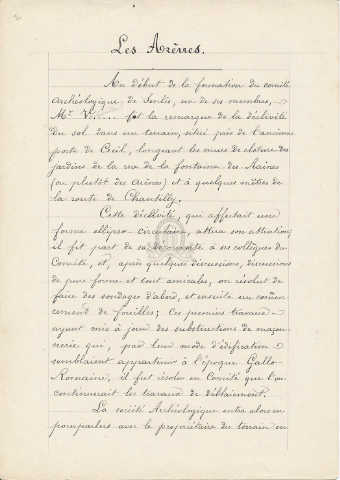 Les Arènes.
Au début de la formation du comité
archéologique de Senlis, un de ses membres,
Mr V...... fit la remarque de la déclivité
du sol dans un terrain, situé près de l'ancienne
porte de Creil, longeant les murs de clôture des
jardins de la rue de la fontaine des Raines
(ou plutôt des Arènes) et à quelques mètres de
la route de Chantilly.
Cette déclivité, qui affectait une
forme ellypso-circulaire, attira son attention,
il fit part de sa découverte à ses collègues du
Comité, et, après quelques discussions, discussions
de pure forme et tout amicales, on résolut de
faire des sondages d'abord, et ensuite un commen
cement de fouilles; ces premiers travaux
ayant mis à jour des substructions de maçon
nerie qui, par leur mode d'édification
semblaient appartenir à l'époque Gallo
Romaine, il fut résolu en Comité que l'on
continuerait les travaux de déblaiement.
La société Archéologique entra alors en
pourparlers avec le propriétaire du terrain en